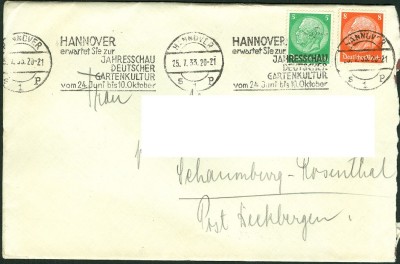 HANNOVER
erwartet Sie zur
JAHRESSCHAU
DEUTSCHER
GARTENKULTUR
vom 24. Juni bis 10. Oktober
HANNOVER
25. 7. 33. 20-21
S 1 P
HANNOVER
erwartet Sie zur
JAHRESSCHAU
DEUTSCHER
GARTENKULTUR
vom 24. Juni bis 10. Oktober
5
8
Deutsches Reich
HANNOVER
Frau
Schaumburg-Rosenthal
Post Deckbergen.